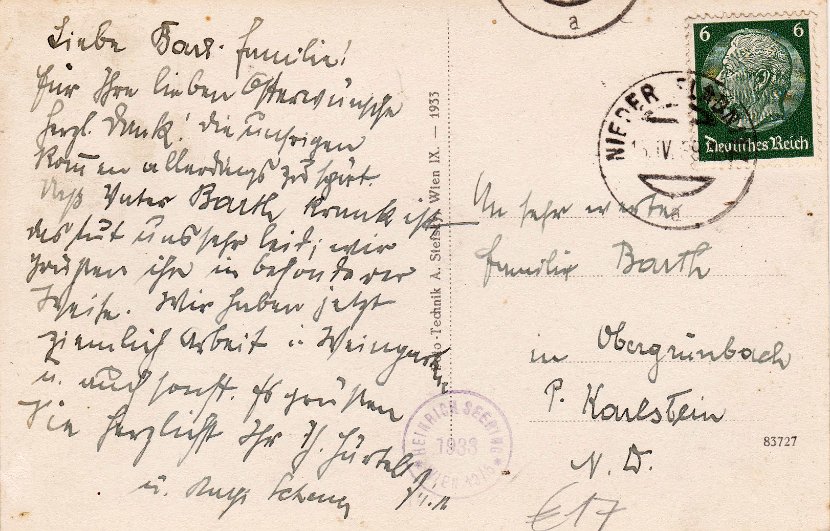 Liebe Bart-familie!
für Ihre lieben Osterwünsche
herzl. Dank! Die unsrigen
kommen allerdings zu spät.
Daß Vater Barth krank ist
das tut uns sehr leid; wir
grüßen ihn in besonderer
Weise. Wir haben jetzt
ziemlich Arbeit i. Weingarten
u. auch sonst. Es grüßen
Sie herzlichst Ihr
u.
Technik A. Wien IX. — 1933
a
NIEDER
IV.
a
6 6
Deutsches Reich
An sehr werte
Familie Barth
in Obergrünbach
P. Karlstein
N. D.
83727
HEINRICH
1938
WIEN
€17